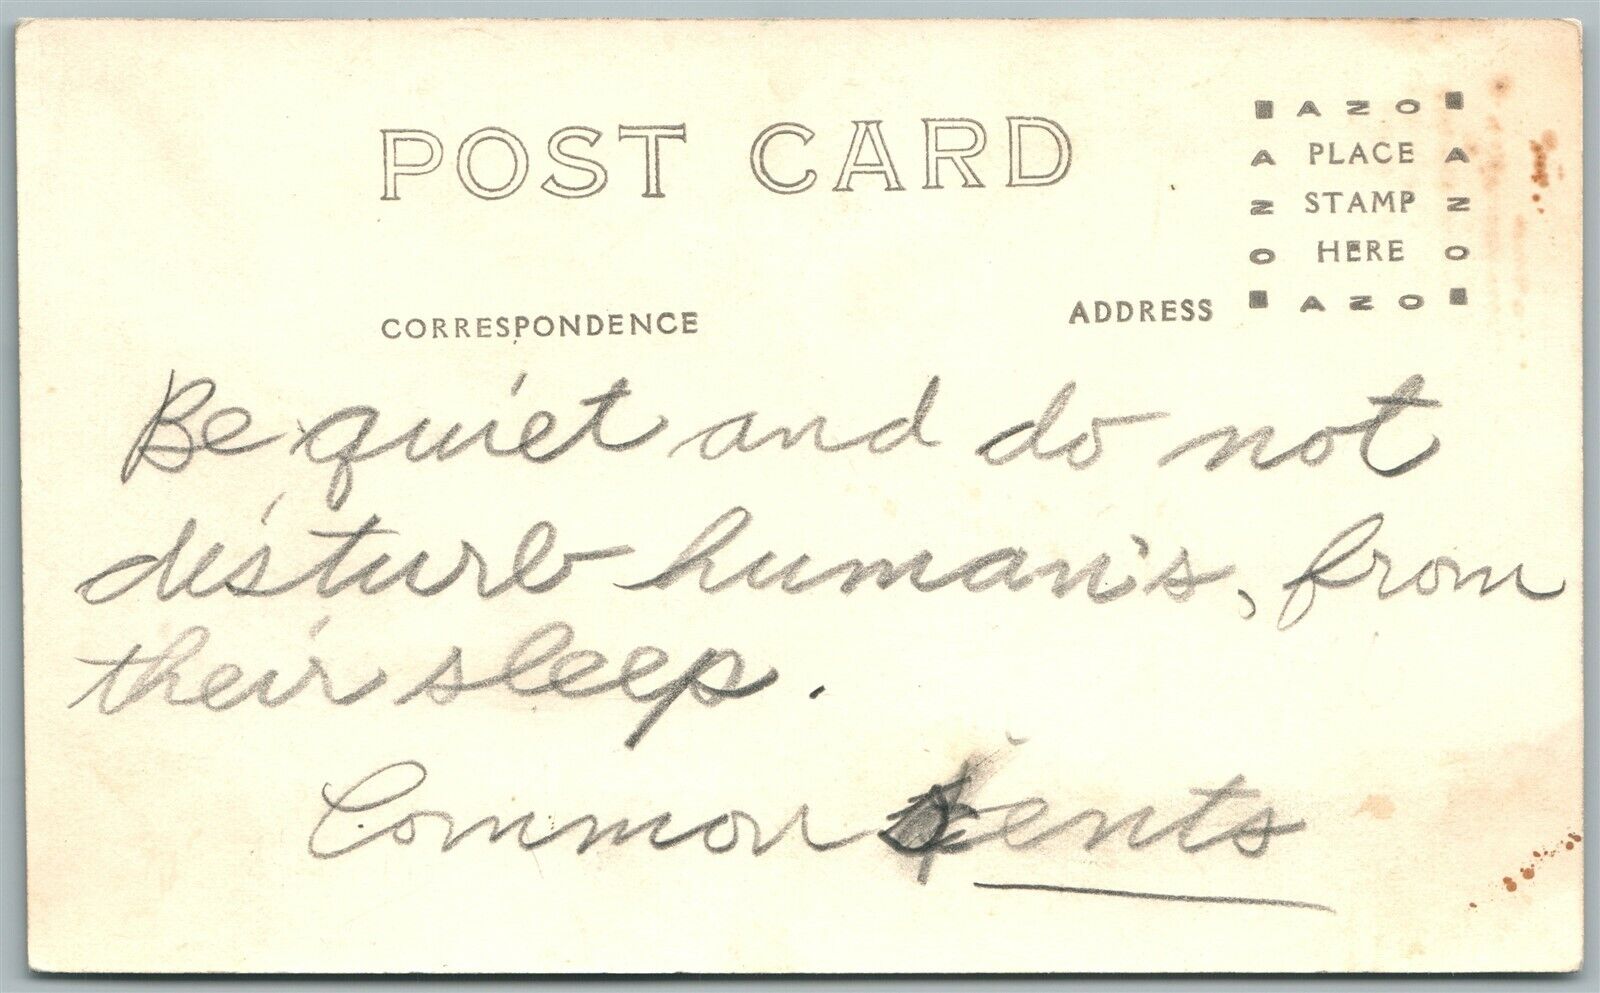 POST CARD
AZO
A PLACE A
Z STAMP Z
O HERE O
AZO
CORRESPONDENCE ADDRESS
Be quiet and do not
disturb human's, from
their sleep.
Common ents